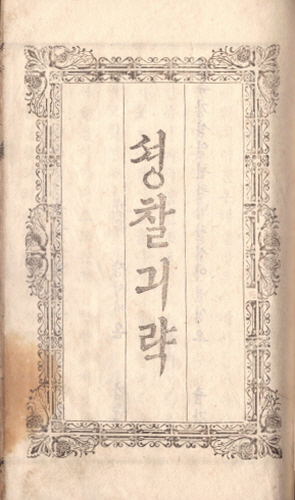 셩찰긔략